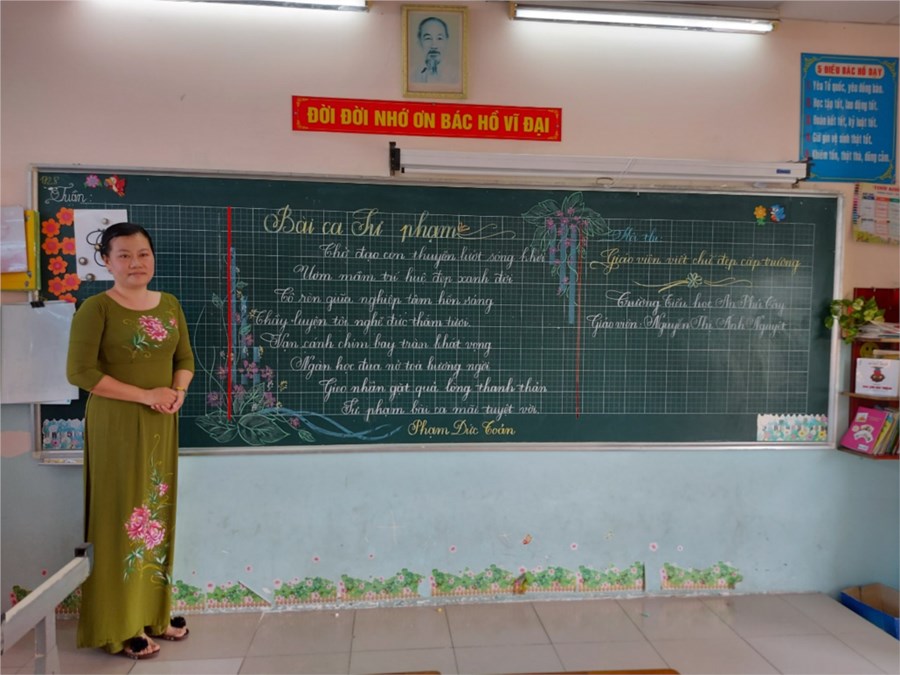 ĐỜI ĐỜI NHỚ ƠN BÁC HỒ VĨ ĐẠI
5 ĐIỀU BÁC HỒ DẠY
Yêu Tổ quốc, yêu đồng bào.
Học tập tốt, lao động tốt.
Đoàn kết tốt, kỷ luật tốt.
Giữ gìn vệ sinh thật tốt.
Khiêm tốn, thật thà, dũng cảm.
Tuần:
Bài ca Sư phạm
Chở đạo con thuyền lướt sóng khơi
Ươm mầm trí huệ đẹp xanh đời
Cô rèn giữa nghiệp tâm hồn sáng
Thầy luyện tôi nghề đức thắm tươi
Vạn cánh chim bay tràn khát vọng
Ngàn học đua nở toả hương ngời
Gieo nhân gặt quả lòng thanh thản
Sư phạm bài ca mãi tuyệt vời.
Phạm Đức Toản
Hội thi
Giáo viên viết chữ đẹp cấp trường
Trường Tiểu học An Phú Tây
Giáo viên: Nguyễn Thị Ánh Nguyệt